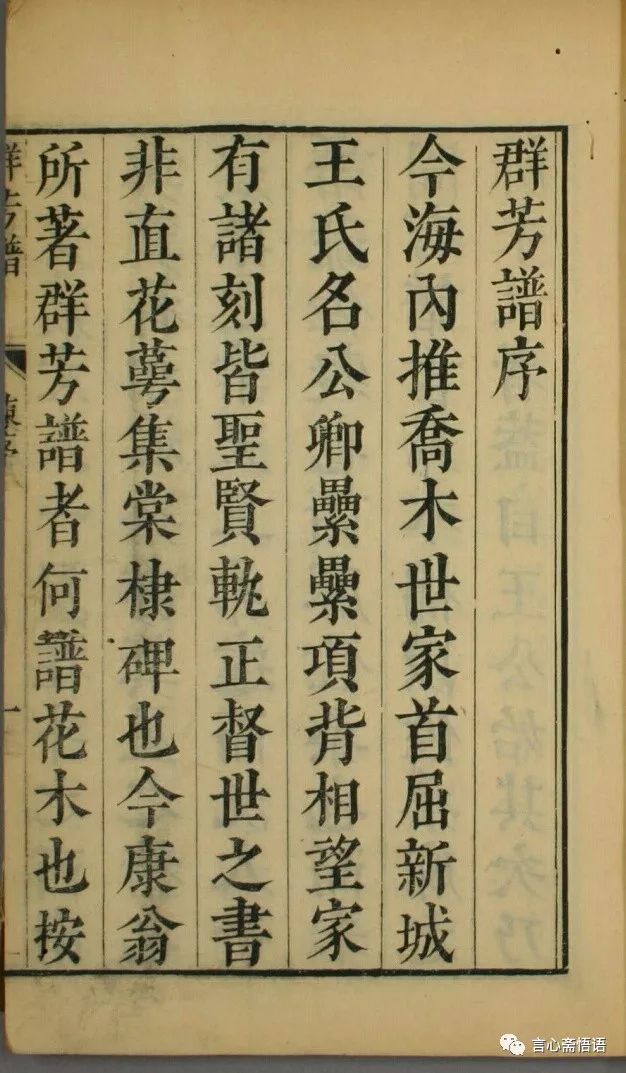 群芳譜序
今海內推喬木世家首屈新城
王氏名公卿纍纍項背相望家
有諸刻皆聖賢軌正督世之書
非直花萼集棠棣碑也今康翁
所著群芳譜者何譜花木也按
群芳譜
一
言心斋悟语